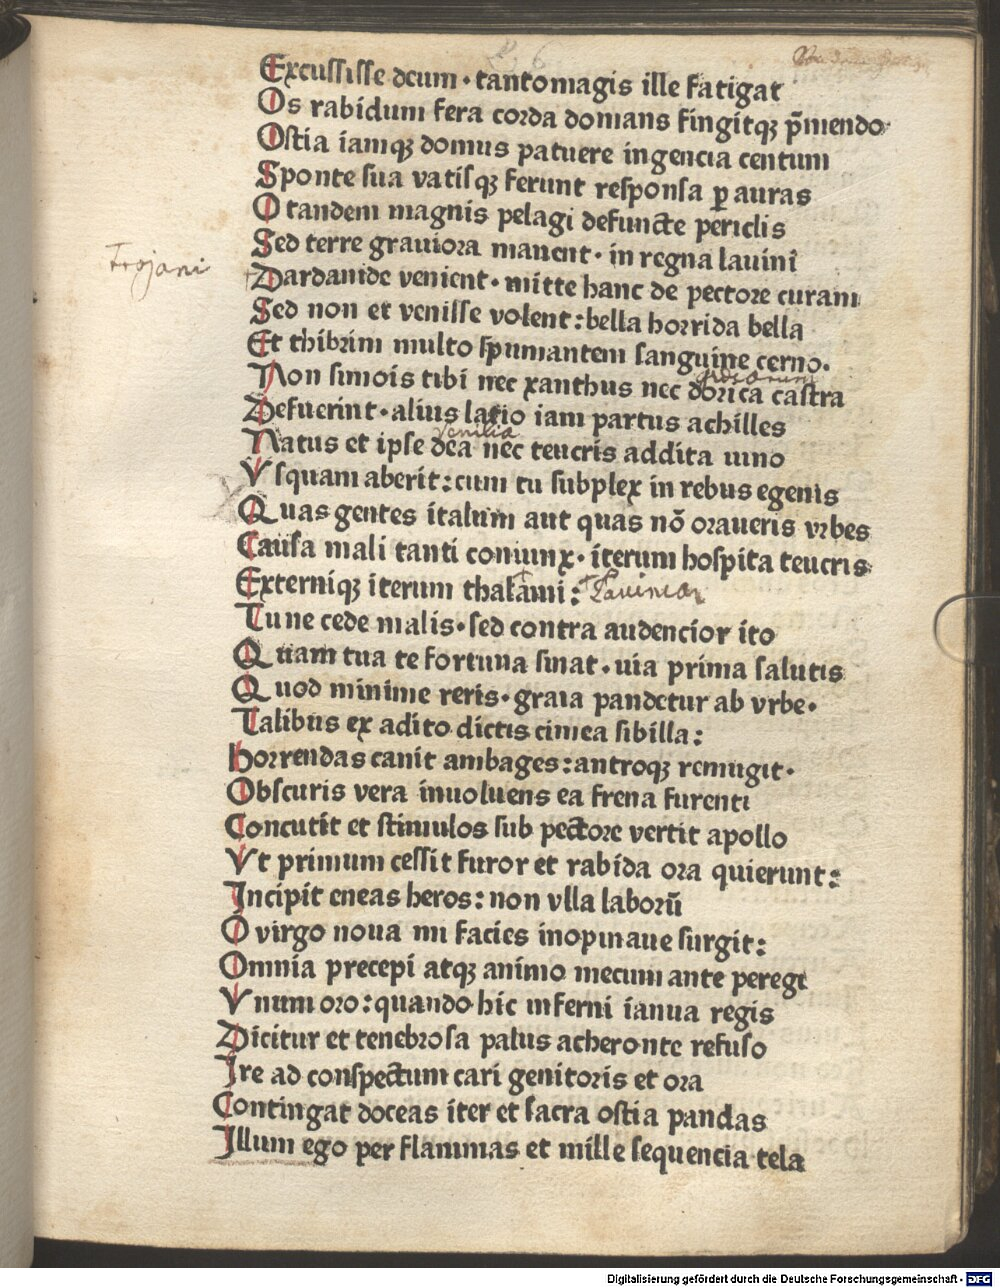 Excussisse deum · tanto magis ille fatigat
Os rabidum fera corda domans fingitqꝫ p̄mendo
Ostia iamqꝫ domus patuere ingencia centum
Sponte sua vatisqꝫ ferunt responsa ꝑ auras
O tandem magnis pelagi defuncte periclis
Sed terre graviora manent · in regna lavini
Trojani
Dardanide venient · mitte hanc de pectore curam
Sed non et venisse volent : bella horrida bella
Et thibrim multo spumantem sanguine cerno ·
Non simois tibi nec xanthus nec dorica castra
Defuerint · alius latio iam partus achilles
Venilia
Natus et ipse dea nec teucris addita iuno
Vsquam aberit : cum tu subplex in rebus egenis
Quas gentes italum aut quas nō oraueris vrbes
Causa mali tanti coniunx · iterum hospita teucris
Externiqꝫ iterum thalami : Lauinia
Tu ne cede malis · sed contra audencior ito
Quam tua te fortuna sinat · uia prima salutis
Quod minime reris · graia pandetur ab vrbe ·
Talibus ex adito dictis cimea sibilla :
Horrendas canit ambages : antroqꝫ remugit ·
Obscuris vera inuoluens ea frena furenti
Concutit et stimulos sub pectore vertit apollo
Vt primum cessit furor et rabida ora quierunt :
Incipit eneas heros : non vlla laborū
O virgo noua mi facies inopinaue surgit :
Omnia precepi atqꝫ animo mecum ante peregi
Vnum oro : quando hic inferni ianua regis
Dicitur et tenebrosa palus acheronte refuso
Ire ad conspectum cari genitoris et ora
Contingat doceas iter et sacra ostia pandas
Illum ego per flammas et mille sequencia tela
Digitalisierung gefördert durch die Deutsche Forschungsgemeinschaft · DFG